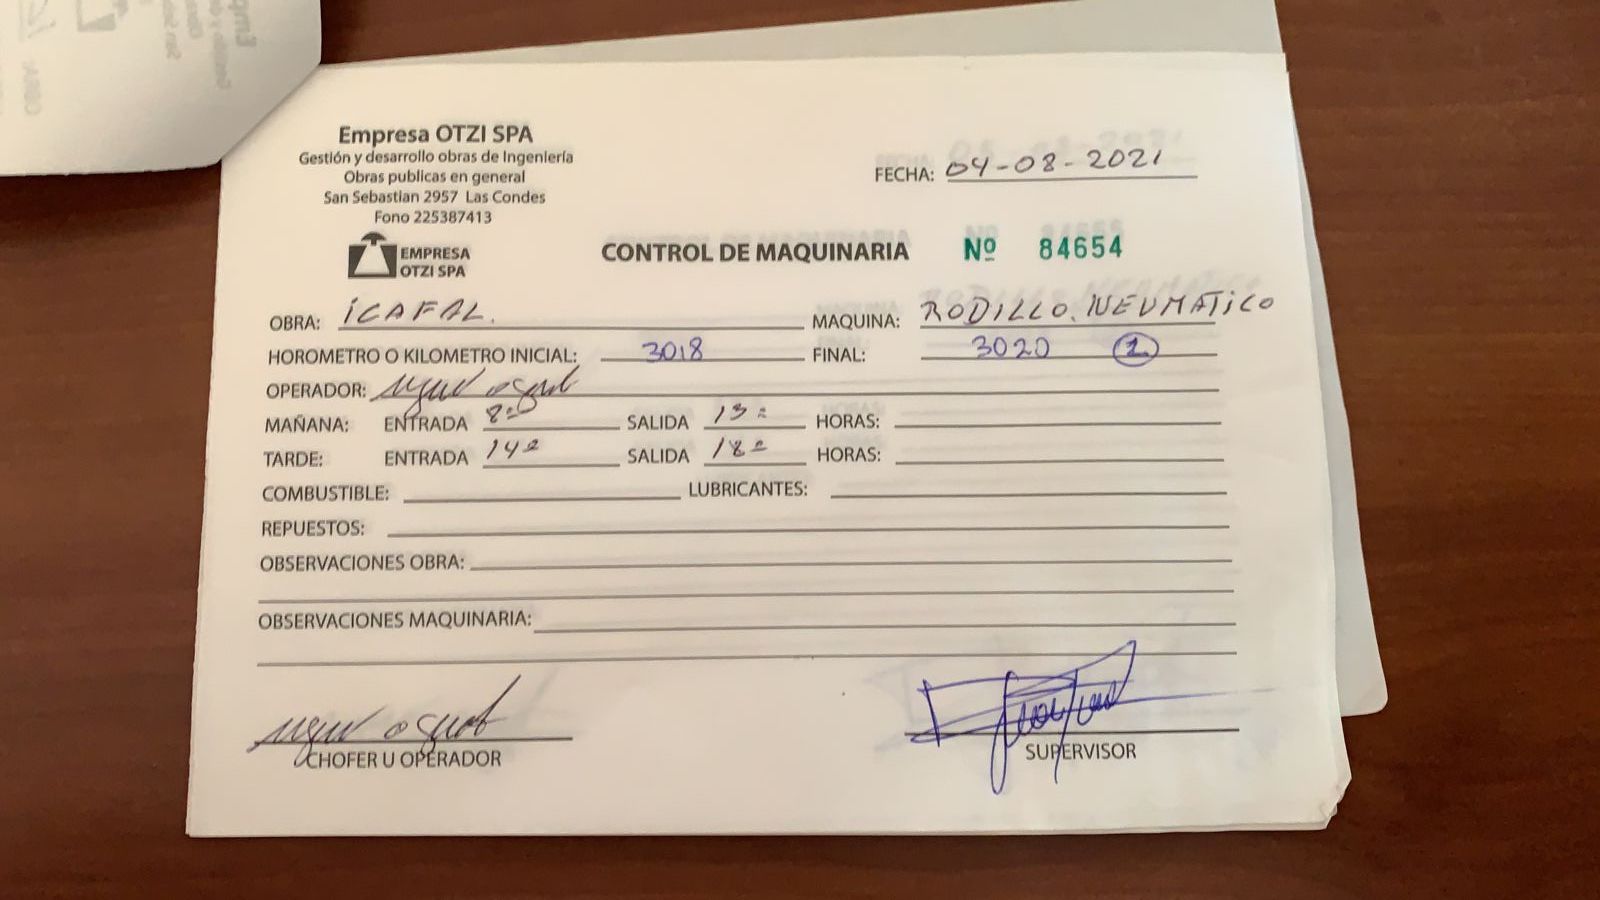 Empresa OTZI SPA
Gestión y desarrollo obras de Ingeniería
Obras publicas en general
San Sebastian 2957 Las Condes
Fono 225387413
EMPRESA
OTZI SPA
FECHA: 04-08-2021
CONTROL DE MAQUINARIA Nº 84654
OBRA: ICAFAL. MAQUINA: RODILLO. NEUMATICO
HOROMETRO O KILOMETRO INICIAL: 3018 FINAL: 3020 2
OPERADOR:
MAÑANA: ENTRADA 8= SALIDA 13= HORAS:
TARDE: ENTRADA 14= SALIDA 18= HORAS:
COMBUSTIBLE: LUBRICANTES:
REPUESTOS:
OBSERVACIONES OBRA:
OBSERVACIONES MAQUINARIA:
CHOFER U OPERADOR SUPERVISOR